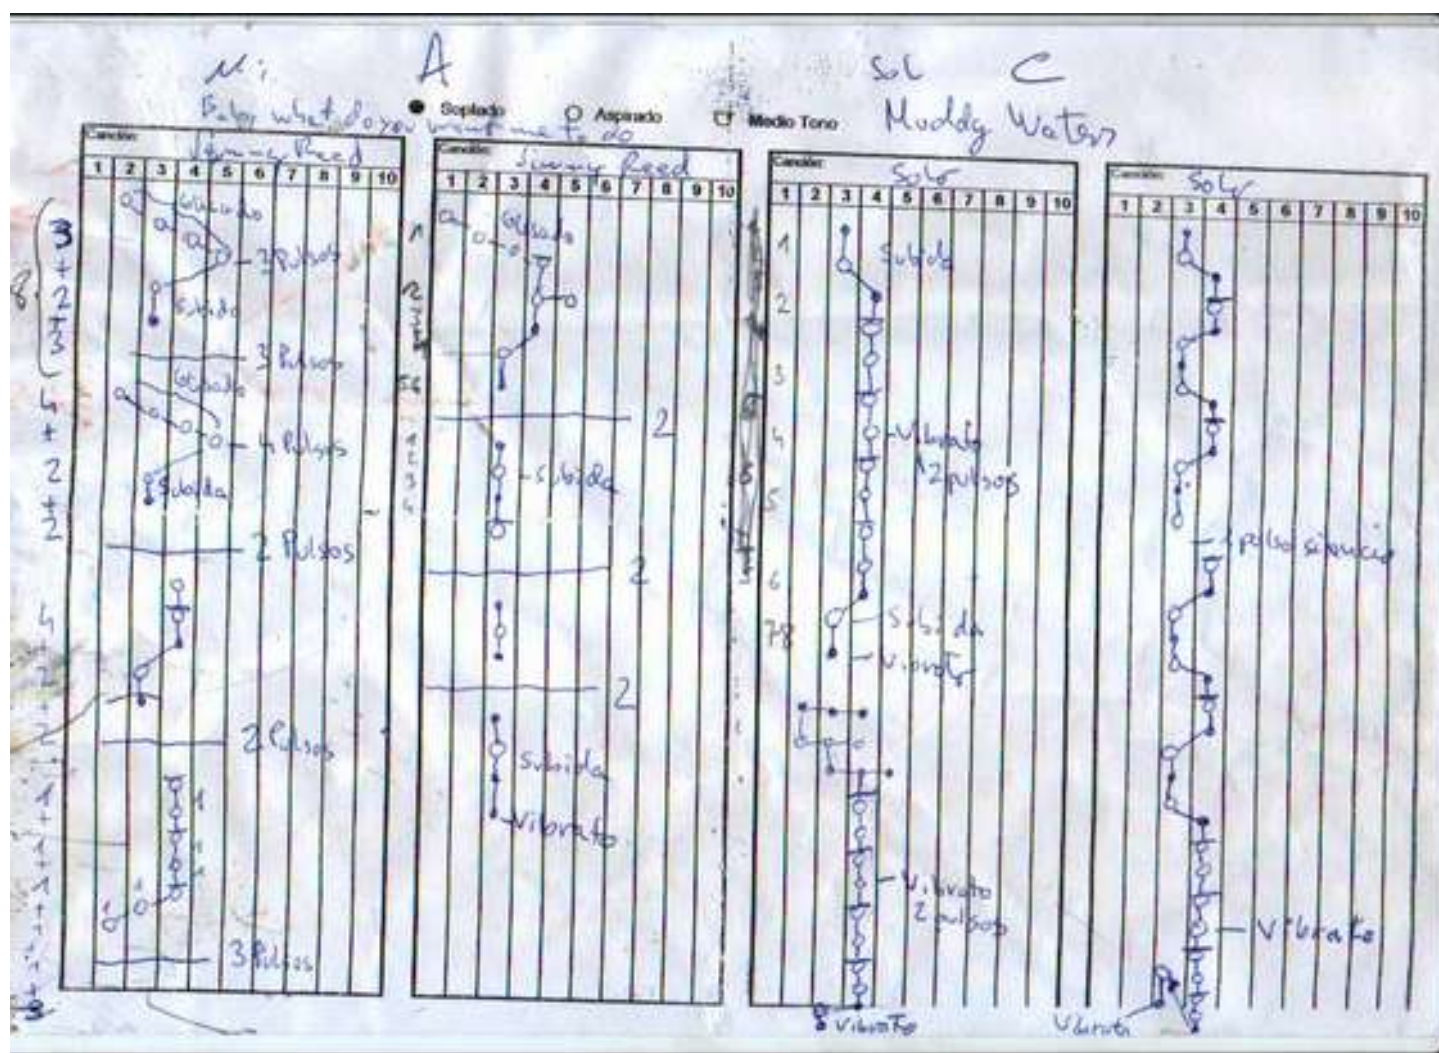 Mi A Sol C
Baby what do you want me to do
Muddy Waters
Soplado Aspirado Medio Tono
Canción:
Jimmy Reed
1 2 3 4 5 6 7 8 9 10
Glisado
3 Pulsos
Subida
3 Pulsos
Glisado
4 Pulsos
Subida
2 Pulsos
2 Pulsos
1
1
1
1
1
1
3 Pulsos
8
3
+
2
+
3
4
+
2
+
2
4
Canción:
Jimmy Reed
1 2 3 4 5 6 7 8 9 10
1
Glisado
2
2
Subida
2
2
Subida
Vibrato
Canción:
Solo
1 2 3 4 5 6 7 8 9 10
1
Subida
2
3
4
Vibrato
2 pulsos
5
6
Subida
78
Vibrato
Vibrato
2 pulsos
Vibrato
Canción:
Solo
1 2 3 4 5 6 7 8 9 10
1 pulso silencio
Vibrato
Vibrato